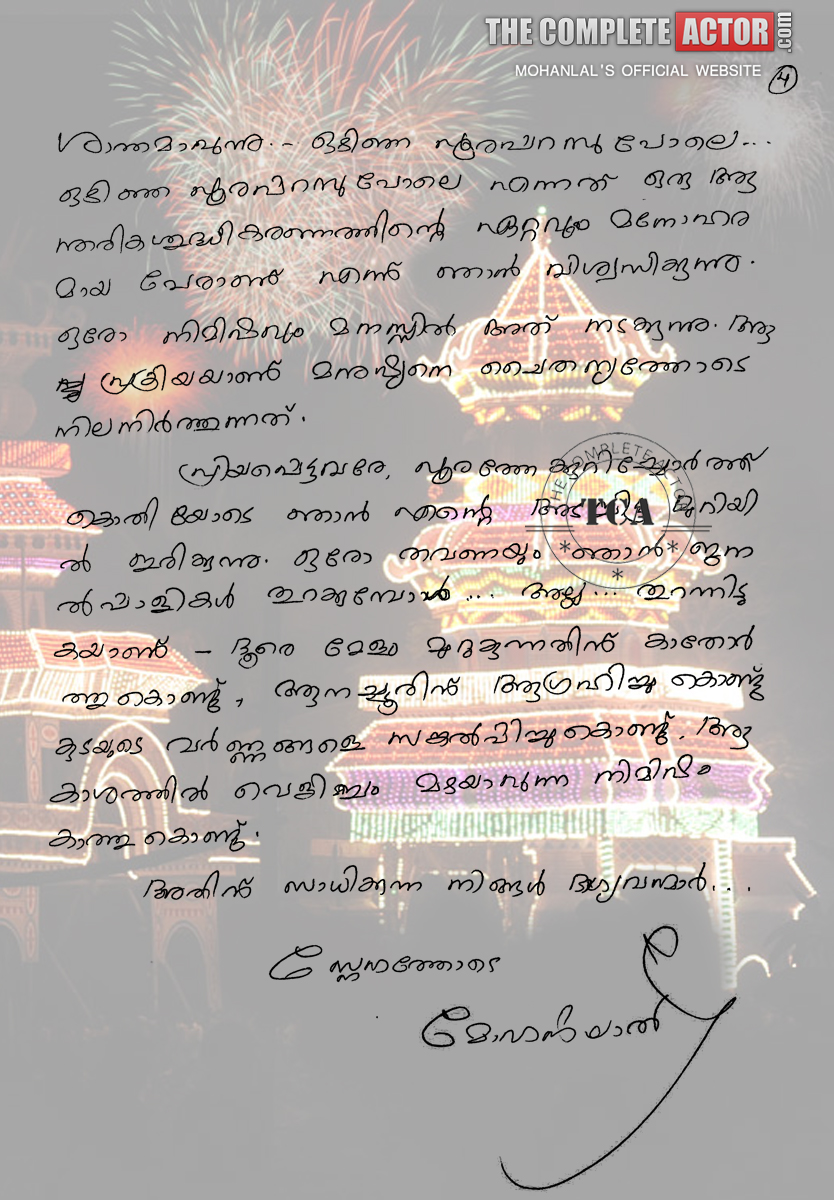 THE COMPLETE ACTOR.com
MOHANLAL'S OFFICIAL WEBSITE
4
ശാന്തമാവുന്നു.- ഒഴിഞ്ഞ പൂരപ്പറമ്പു പോലെ...
ഒഴിഞ്ഞ പൂരപ്പറമ്പു പോലെ എന്നത് ഒരു ആ
ന്തരികശുദ്ധീകരണത്തിന്റെ ഏറ്റവും മനോഹര
മായ പേരാണ് എന്ന് ഞാൻ വിശ്വസിക്കുന്നു.
ഒരോ നിമിഷവും മനസ്സിൽ അത് നടക്കുന്നു. ആ
പ്രക്രിയയാണ് മനുഷ്യനെ ചൈതന്യത്തോടെ
നിലനിർത്തുന്നത്.
പ്രിയപ്പെട്ടവരേ, പൂരത്തേക്കുറിച്ചോർത്ത്
കൊതിയോടെ ഞാൻ എന്റെ അടച്ചിട്ട മുറിയി
ൽ ഇരിക്കുന്നു. ഒരോ തവണയും ഞാൻ ജന
ൽപ്പാളികൾ തുറക്കുമ്പോൾ ... അല്ല ... തുറന്നിട്ടു
കയാണ് - ദൂരെ മേളം മുറുകുന്നതിന് കാതോർ
ത്തുകൊണ്ട്, ആനച്ചൂരിന് ആഗ്രഹിച്ചു കൊണ്ട്
കുടയുടെ വർണ്ണങ്ങളെ സങ്കൽപ്പിച്ചുകൊണ്ട്. ആ
കാശത്തിൽ വെളിച്ചം മഴയാവുന്ന നിമിഷം
കാത്തു കൊണ്ട്.
അതിന് സാധിക്കുന്ന നിങ്ങൾ ഭാഗ്യവാന്മാർ...
സ്നേഹത്തോടെ
മോഹൻലാൽ
THE COMPLETE ACTOR
TCA